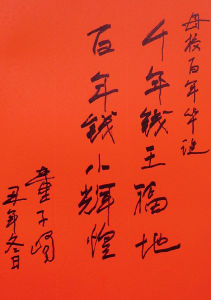 母校百年华诞
千年钱王福地
百年钱小辉煌
童子鸿
丑年冬日